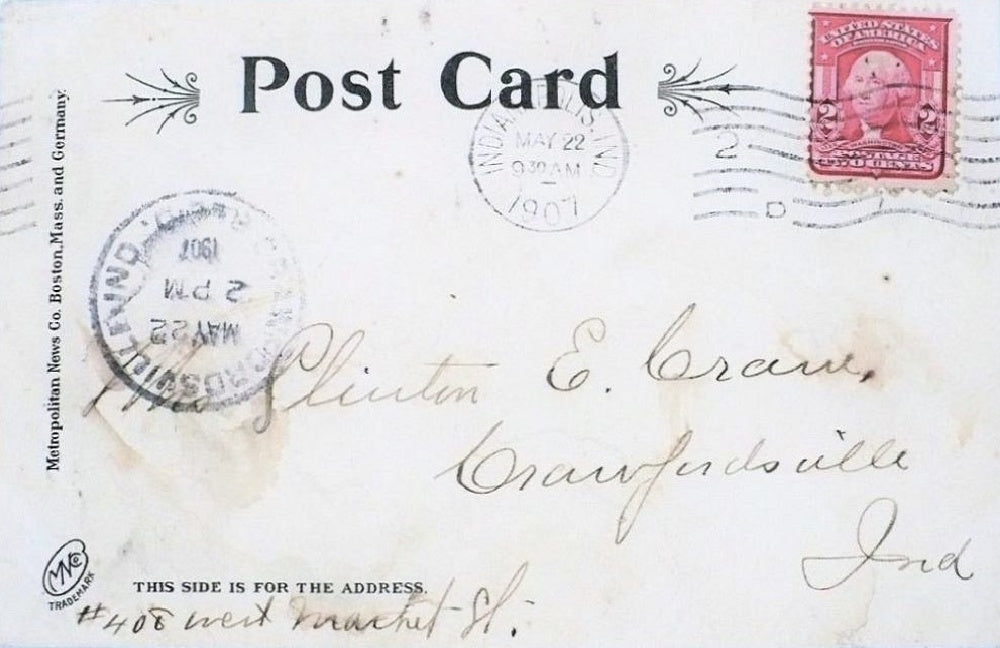 Post Card
UNITED STATES
OF AMERICA
2 2
POSTAGE
TWO CENTS
INDIANAPOLIS, IND
MAY 22
9 30 AM
1907
2
D
CRAWFORDSVILLE, IND.
REC'D.
MAY 22
2 PM
1907
Metropolitan News Co. Boston, Mass. and Germany.
Clinton E. Crane,
Crawfordsville
Ind
MNCo
TRADEMARK
THIS SIDE IS FOR THE ADDRESS.
#408 west Market St.